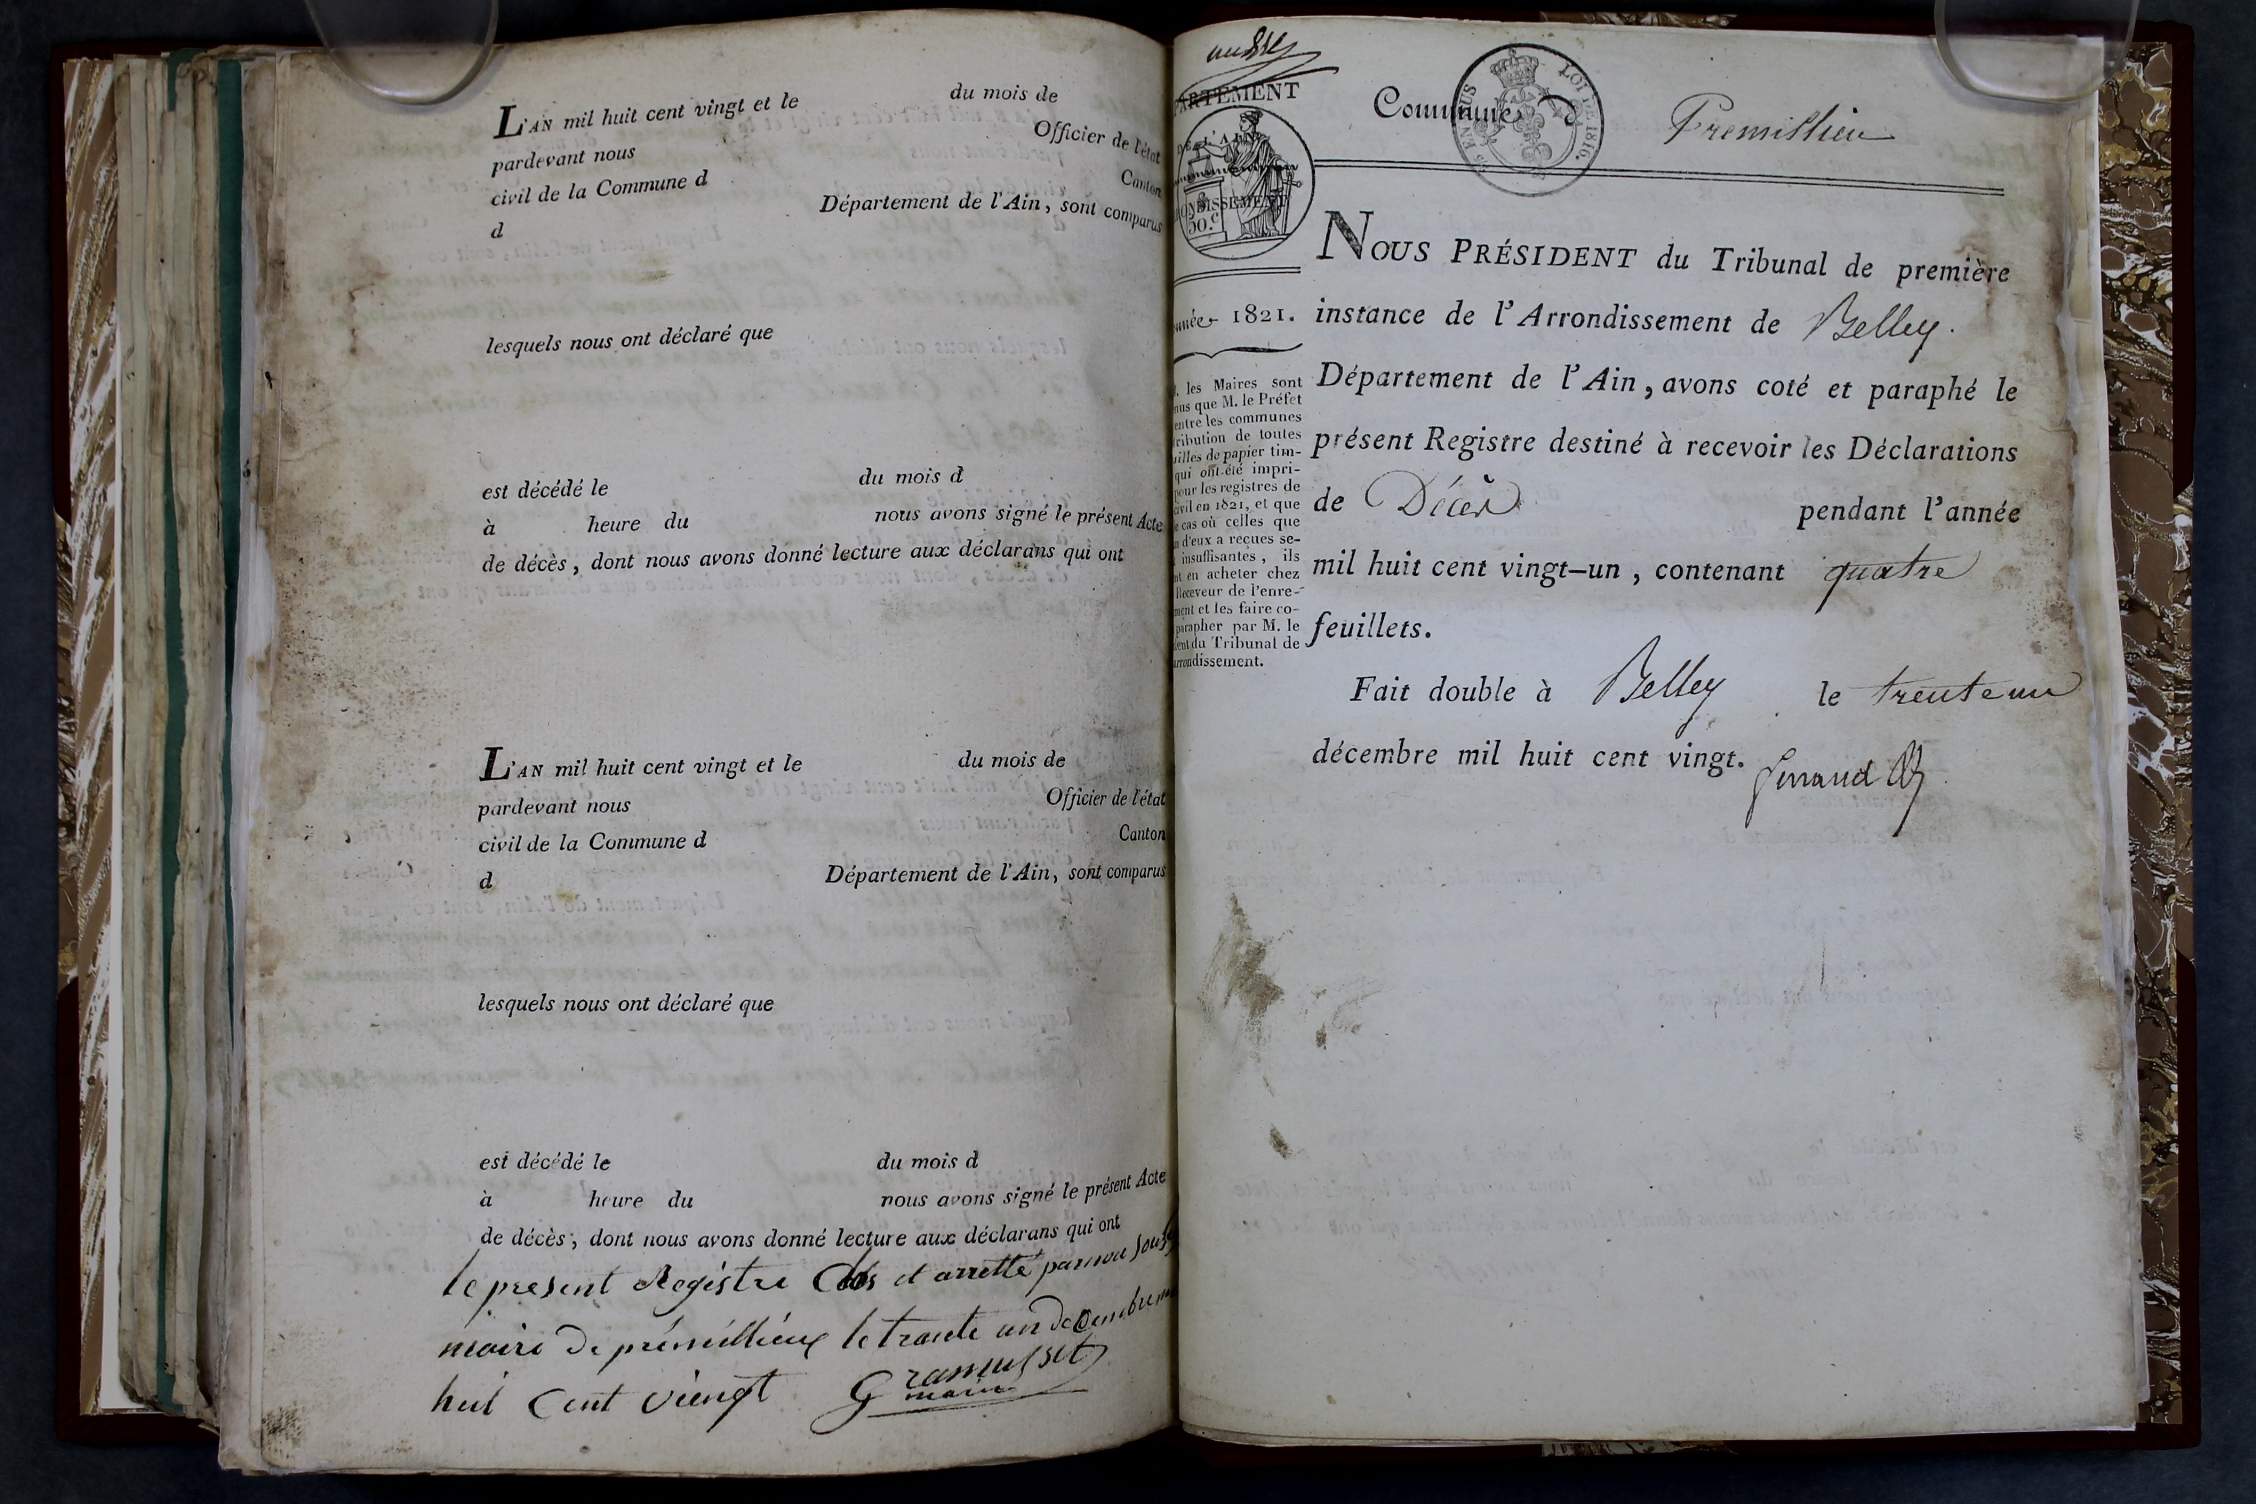 L'AN mil huit cent vingt et le du mois de
pardevant nous Officier de l'état
civil de la Commune d Canton
d Département de l'Ain, sont comparus
lesquels nous ont déclaré que
est décédé le du mois d
à heure du nous avons signé le présent Acte
de décès, dont nous avons donné lecture aux déclarans qui ont
L'AN mil huit cent vingt et le du mois de
pardevant nous Officier de l'état
civil de la Commune d Canton
d Département de l'Ain, sont comparus
lesquels nous ont déclaré que
est décédé le du mois d
à heure du nous avons signé le présent Acte
de décès, dont nous avons donné lecture aux déclarans qui ont
le present Registre Clos et arretté par nou
maire de prémillieux le trante un
huit Cent viengt
maire
PARTEMENT
DE L'AIN
ONDISSEMENT
50.c
LOI DE 1816.
EN SUS
nnée 1821.
les Maires sont
nus que M. le Préfet
entre les communes
ribution de toutes
uilles de papier tim-
qui ont été impri-
pour les registres de
civil en 1821, et que
e cas où celles que
n d'eux a reçues se-
insuffisantes, ils
nt en acheter chez
Receveur de l'enre-
ment et les faire co-
parapher par M. le
dent du Tribunal de
arrondissement.
Commune d Premillieu
NOUS PRÉSIDENT du Tribunal de première
instance de l'Arrondissement de Belley.
Département de l'Ain, avons coté et paraphé le
présent Registre destiné à recevoir les Déclarations
de Décès pendant l'année
mil huit cent vingt-un, contenant quatre
feuillets.
Fait double à Belley le trente un
décembre mil huit cent vingt.